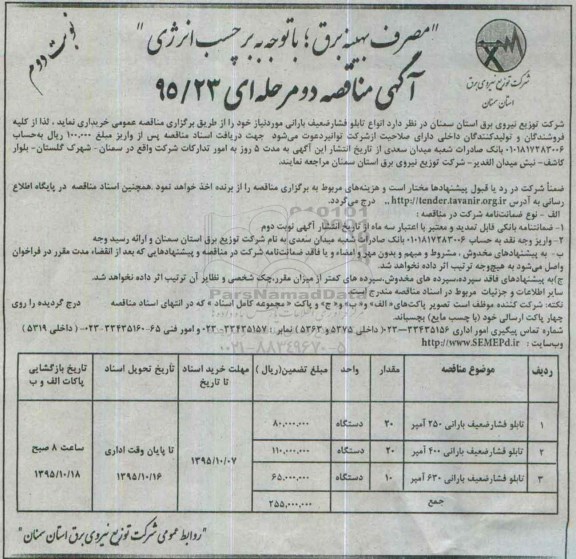 "مصرف بهینه برق؛ با توجه به برچسب انرژی"
نوبت دوم
آگهی مناقصه دو مرحله ای ۹۵/۲۳
شرکت توزیع نیروی برق
استان سمنان
شرکت توزیع نیروی برق استان سمنان در نظر دارد انواع تابلو فشارضعیف بارانی موردنیاز خود را از طریق برگزاری مناقصه عمومی خریداری نماید ، لذا از کلیه
فروشندگان و تولیدکنندگان داخلی دارای صلاحیت ازشرکت توانیردعوت می‌شود جهت دریافت اسناد مناقصه پس از واریز مبلغ ۱۰۰,۰۰۰ ریال به‌حساب
۰۱۰۱۸۱۷۲۸۳۰۰۶ بانک صادرات شعبه میدان سعدی از تاریخ انتشار این آگهی به مدت ۵ روز به امور تدارکات شرکت واقع در سمنان - شهرک گلستان - بلوار
کاشف- نبش میدان الغدیر- شرکت توزیع نیروی برق استان سمنان مراجعه نمایند.
ضمناً شرکت در رد یا قبول پیشنهادها مختار است و هزینه‌های مربوط به برگزاری مناقصه را از برنده اخذ خواهد نمود .همچنین اسناد مناقصه در پایگاه اطلاع
رسانی به آدرس http://tender.tavanir.org.ir .. درج می‌گردد.
الف - نوع ضمانتنامه شرکت در مناقصه :
۱- ضمانتنامه بانکی قابل تمدید و معتبر با اعتبار سه ماه از تاریخ انتشار آگهی نوبت دوم
۲- واریز وجه نقد به حساب ۰۱۰۱۸۱۷۲۸۳۰۰۶ بانک صادرات شعبه میدان سعدی به نام شرکت توزیع برق استان سمنان و ارائه رسید وجه
ب- به پیشنهادهای مخدوش ، مشروط و مبهم و بدون مهر و امضاء و یا فاقد ضمانت‌نامه شرکت در مناقصه و پیشنهادهایی که بعد از انقضاء مدت مقرر در فراخوان
واصل می‌شود به هیچ‌وجه ترتیب اثر داده نخواهد شد.
ج)به پیشنهادهای فاقد سپرده،سپرده های مخدوش،سپرده های کمتر از میزان مقرر،چک شخصی و نظایر آن ترتیب اثر داده نخواهد شد.
سایر اطلاعات و جزئیات مربوط در اسناد مناقصه مندرج است.
نکته: شرکت کننده موظف است تصویر پاکت‌های« الف» و«ب» و« ج» و پاکت « مجموعه کامل اسناد » که در انتهای اسناد مناقصه درج گردیده را روی
چهار پاکت ارسالی خود (با چسب مایع) بچسباند.
شماره تماس پیگیری امور اداری ۳۳۴۳۵۱۵۶-۰۲۳( داخلی ۵۲۷۵ و ۵۳۶۳) نمابر : ۳۳۴۳۵۱۵۷-۰۲۳ و امور فنی ۶۵-۳۳۴۳۵۱۶۰-۰۲۳ ( داخلی ۵۳۱۹ )
وب‌سایت : http://www.SEMEPd.ir
ParsNamadData
۰۲۱-۸۸۳۴۹۶۷۰-۵
ردیف موضوع مناقصه مقدار واحد مبلغ تضمین(ریال) مهلت خرید اسناد تا تاریخ تاریخ تحویل اسناد تاریخ بازگشایی پاکات الف و ب
۱ تابلو فشارضعیف بارانی ۲۵۰ آمپر ۲۰ دستگاه ۸۰,۰۰۰,۰۰۰ ۱۳۹۵/۱۰/۰۷ تا پایان وقت اداری ۱۳۹۵/۱۰/۱۶ ساعت ۸ صبح ۱۳۹۵/۱۰/۱۸
۲ تابلو فشارضعیف بارانی ۴۰۰ آمپر ۲۰ دستگاه ۱۱۰,۰۰۰,۰۰۰
۳ تابلو فشارضعیف بارانی ۶۳۰ آمپر ۱۰ دستگاه ۶۵,۰۰۰,۰۰۰
جمع ۲۵۵,۰۰۰,۰۰۰
"روابط عمومی شرکت توزیع نیروی برق استان سمنان"